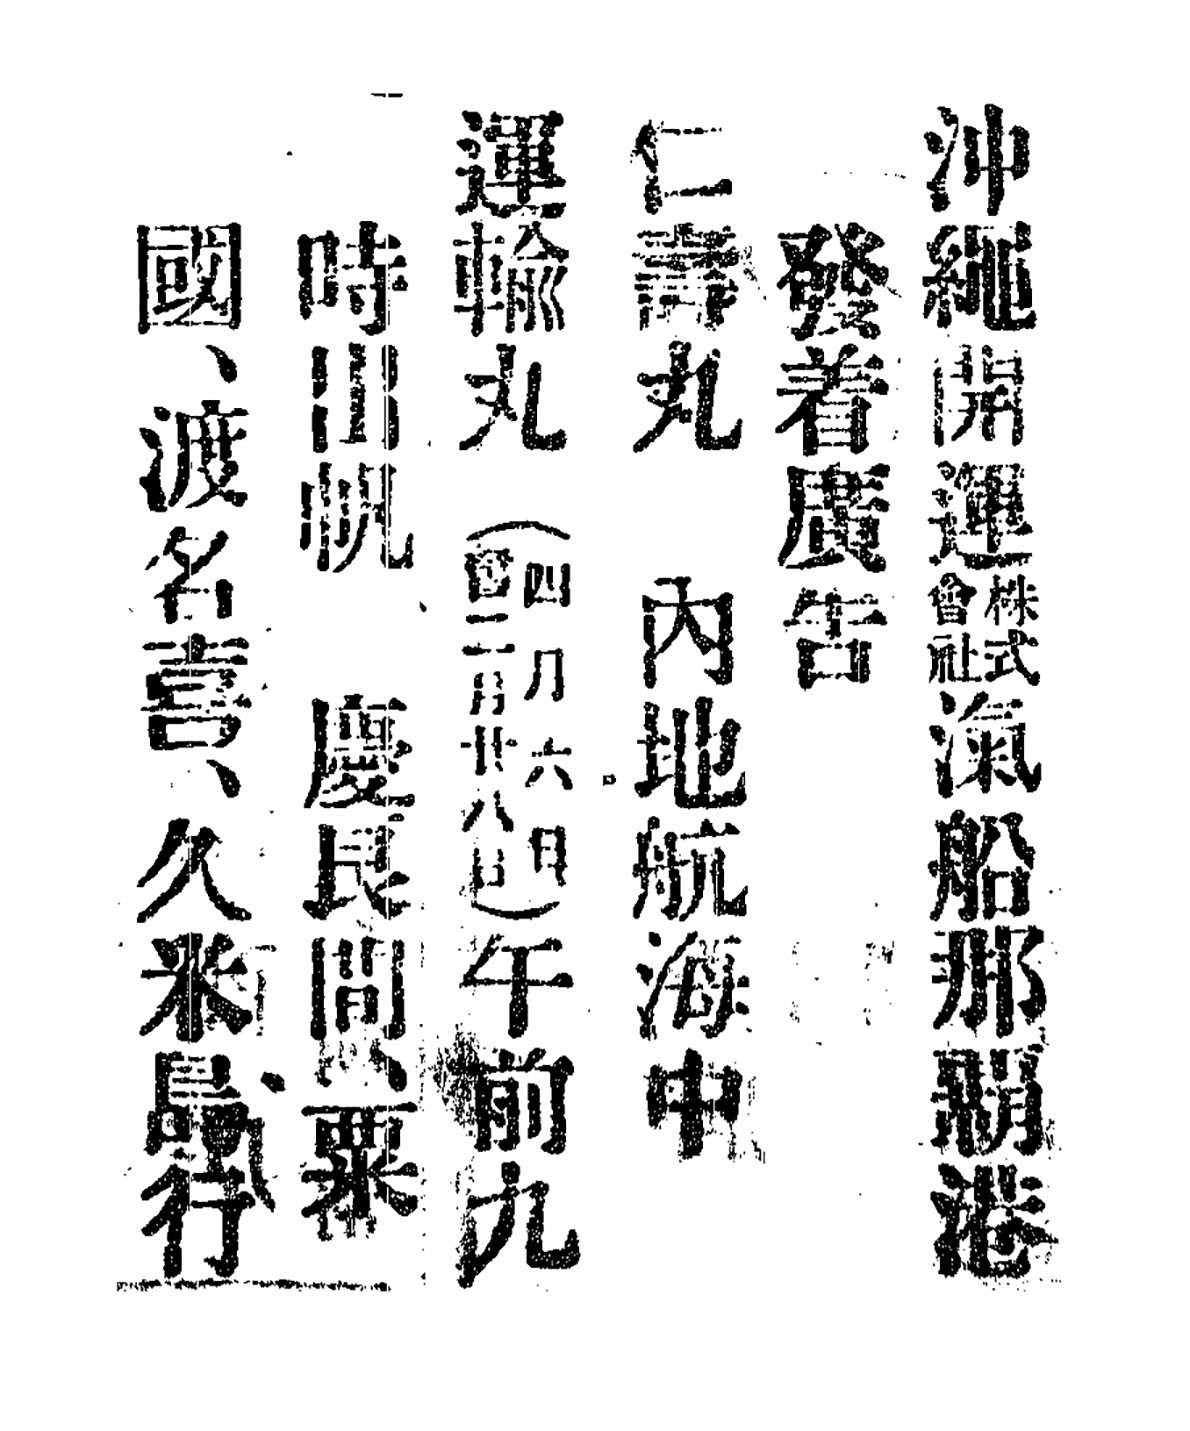 沖繩開運株式會社滊船那覇港
發着廣告
仁壽丸 內地航海中
運輸丸 (四月六日舊二月廿八日)午前九
時出帆 慶良間、粟
國、渡名喜、久米島行